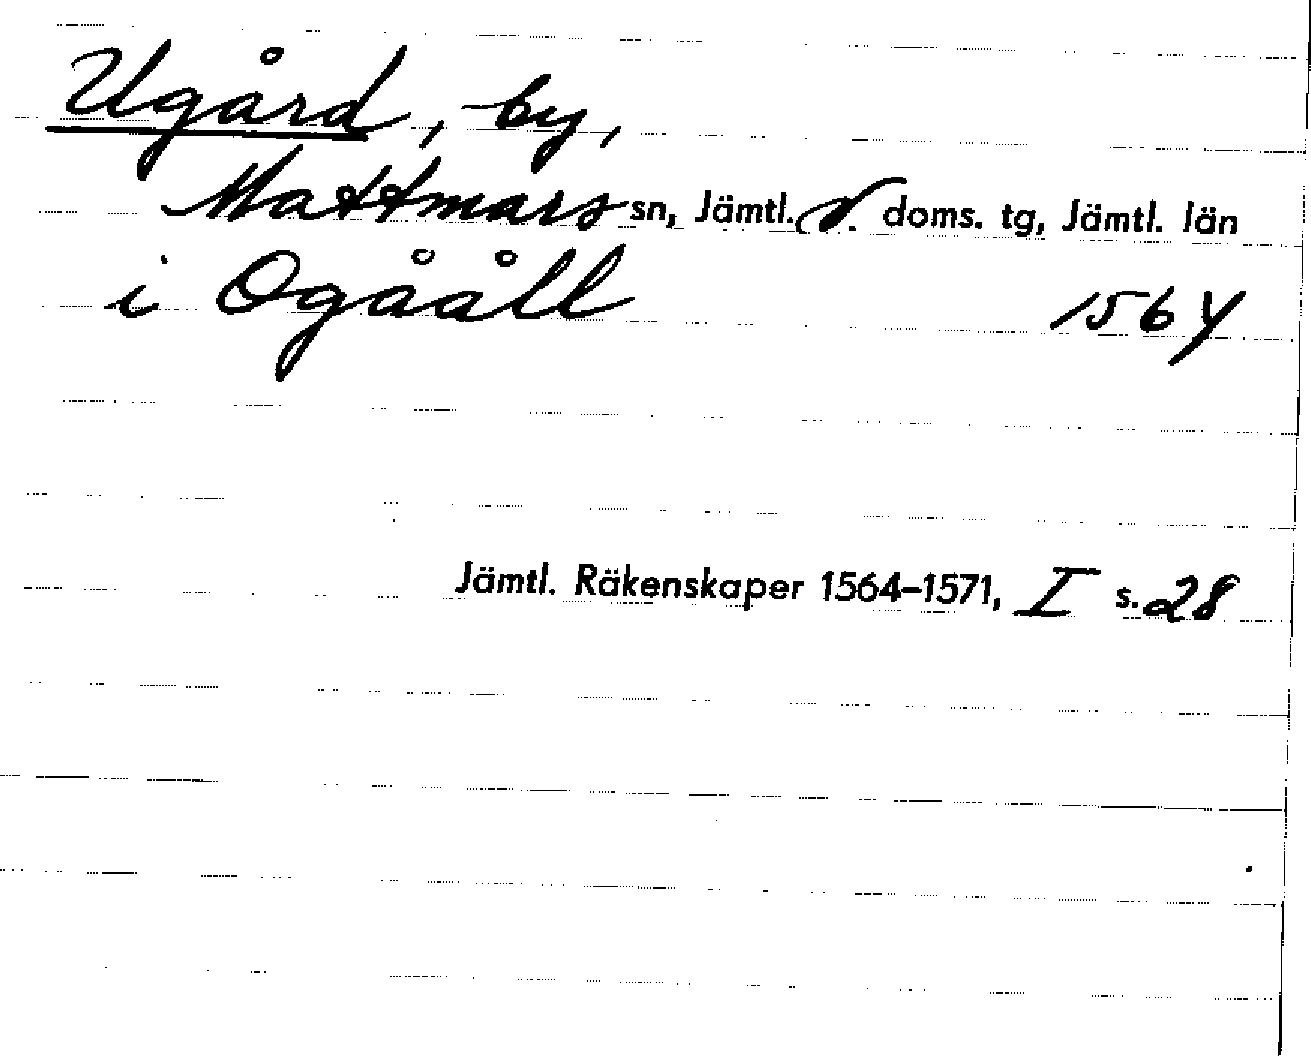 Ugård, by,
Mattmars sn, Jämtl. v. doms. tg, Jämtl. län
i Ogååll 1564
Jämtl. Räkenskaper 1564–1571, I s. 28